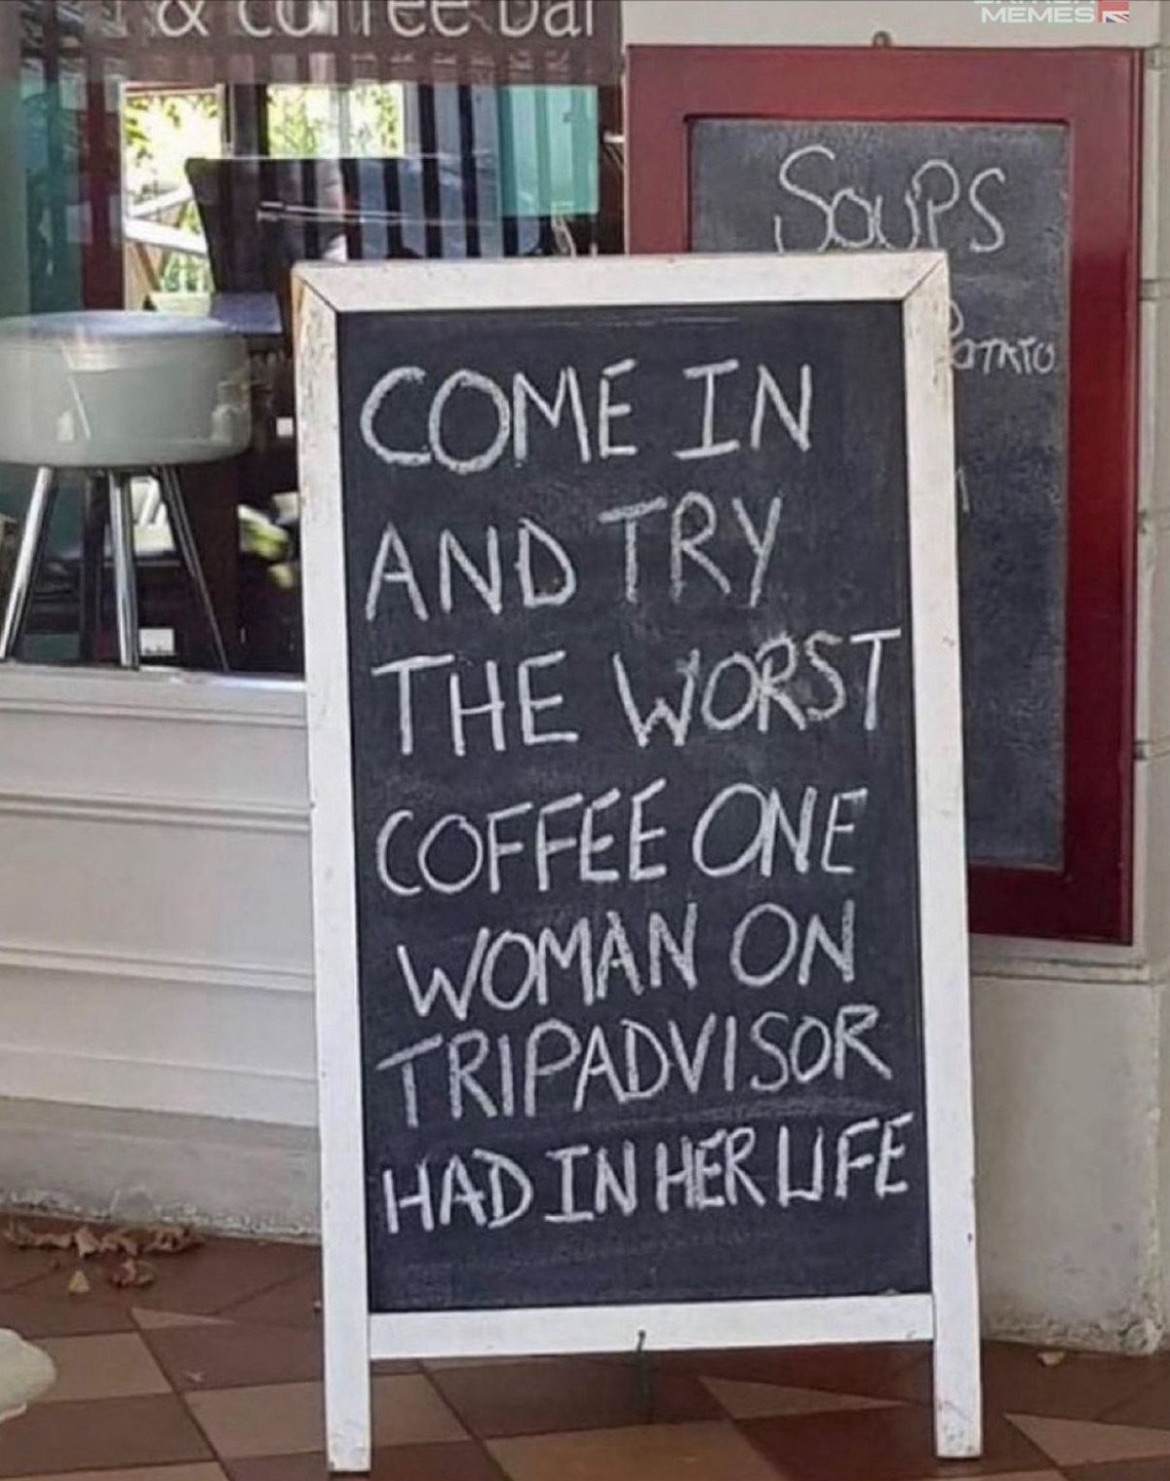 & coffee bar
MEMES
SOUPS
POTATO
COME IN
AND TRY
THE WORST
COFFEE ONE
WOMAN ON
TRIPADVISOR
HAD IN HER LIFE